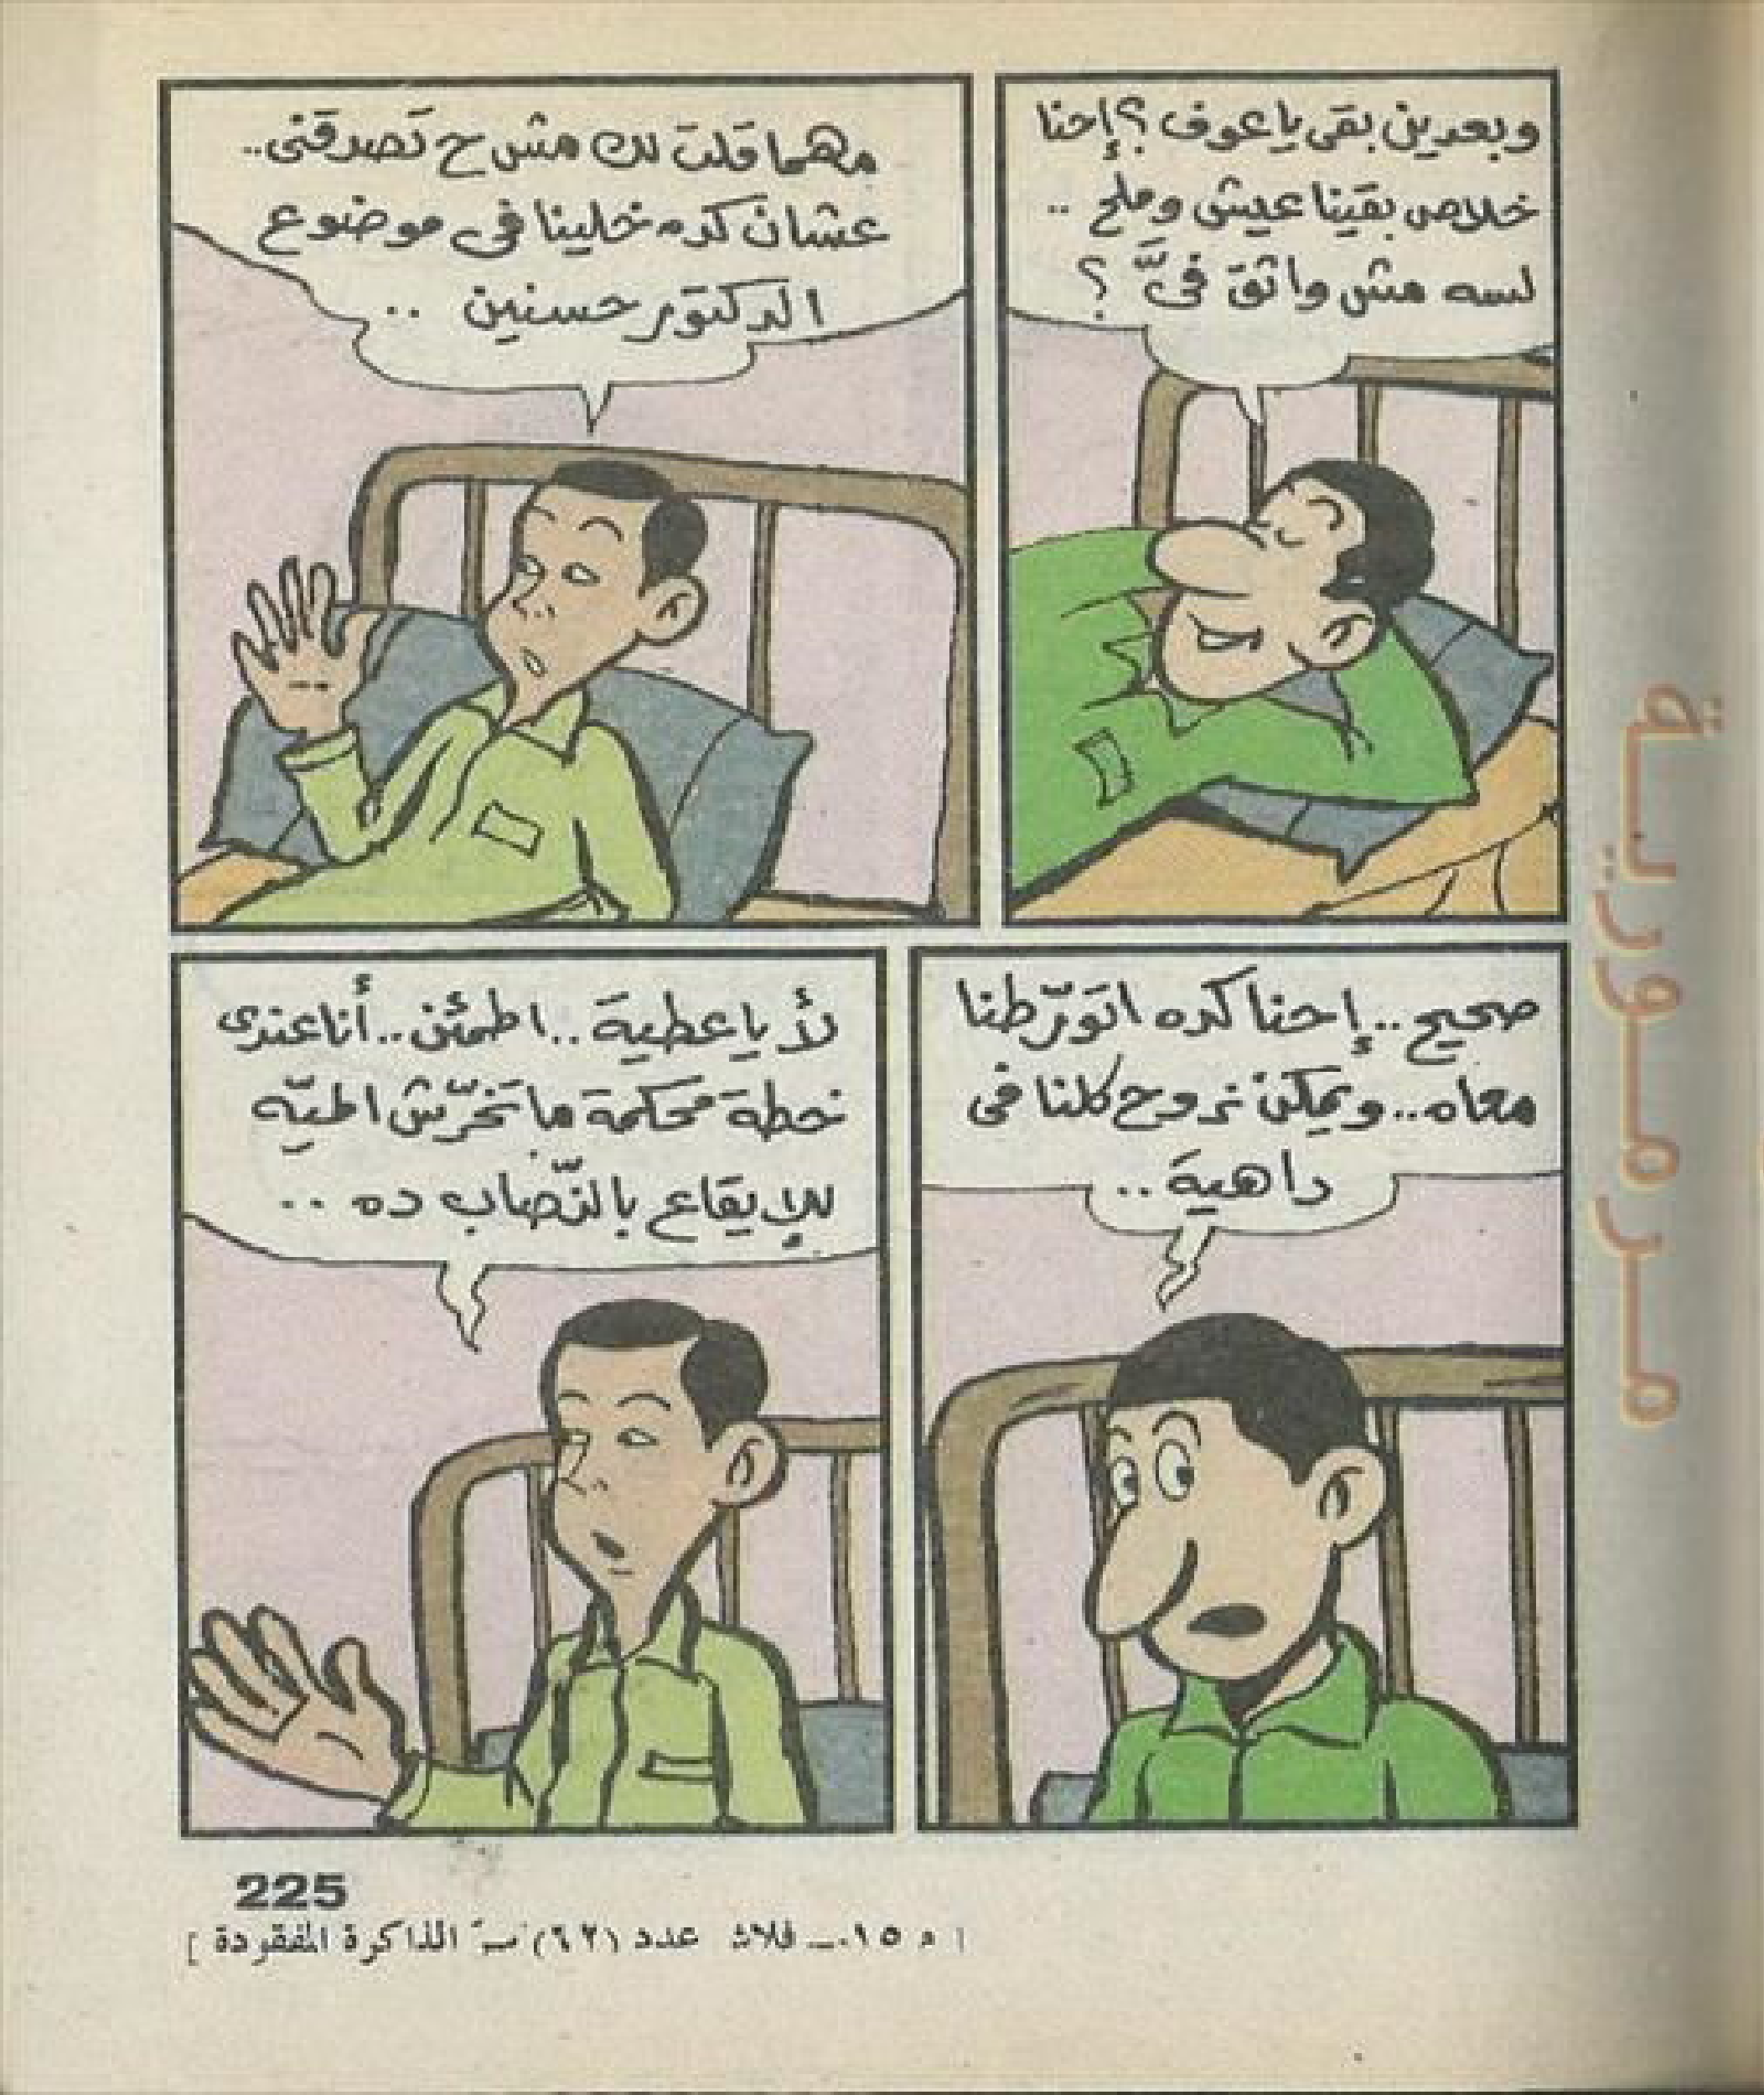 وبعدين بقى يا عوف ؟ إحنا
خلاص بقينا عيش وملح ..
لسه مش واثق فىَّ ؟
مهما قلت لك مش ح تصدقنى..
عشان كده خلينا فى موضوع
الدكتور حسنين ..
صحيح.. إحنا كده اتورّطنا
معاه.. ويمكن نروح كلنا فى
داهية..
لأ يا عطية.. اطمئن.. أنا عندى
خطة محكمة ما تخرّش الميّه
للإيقاع بالنّصاب ده ..
مرمورية
225
[ م ١٥ ـ فلاش عدد (٦٢) سرّ الذاكرة المفقودة ]